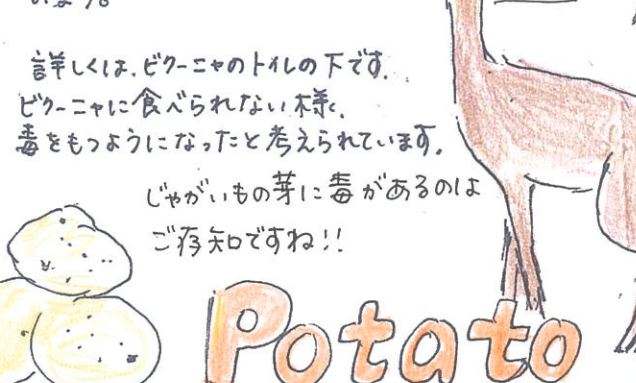 詳しくは、ビクーニャのトイレの下です。
ビクーニャに食べられない様、
毒をもつようになったと考えられています。
じゃがいもの芽に毒があるのは
ご存知ですね!!
Potato